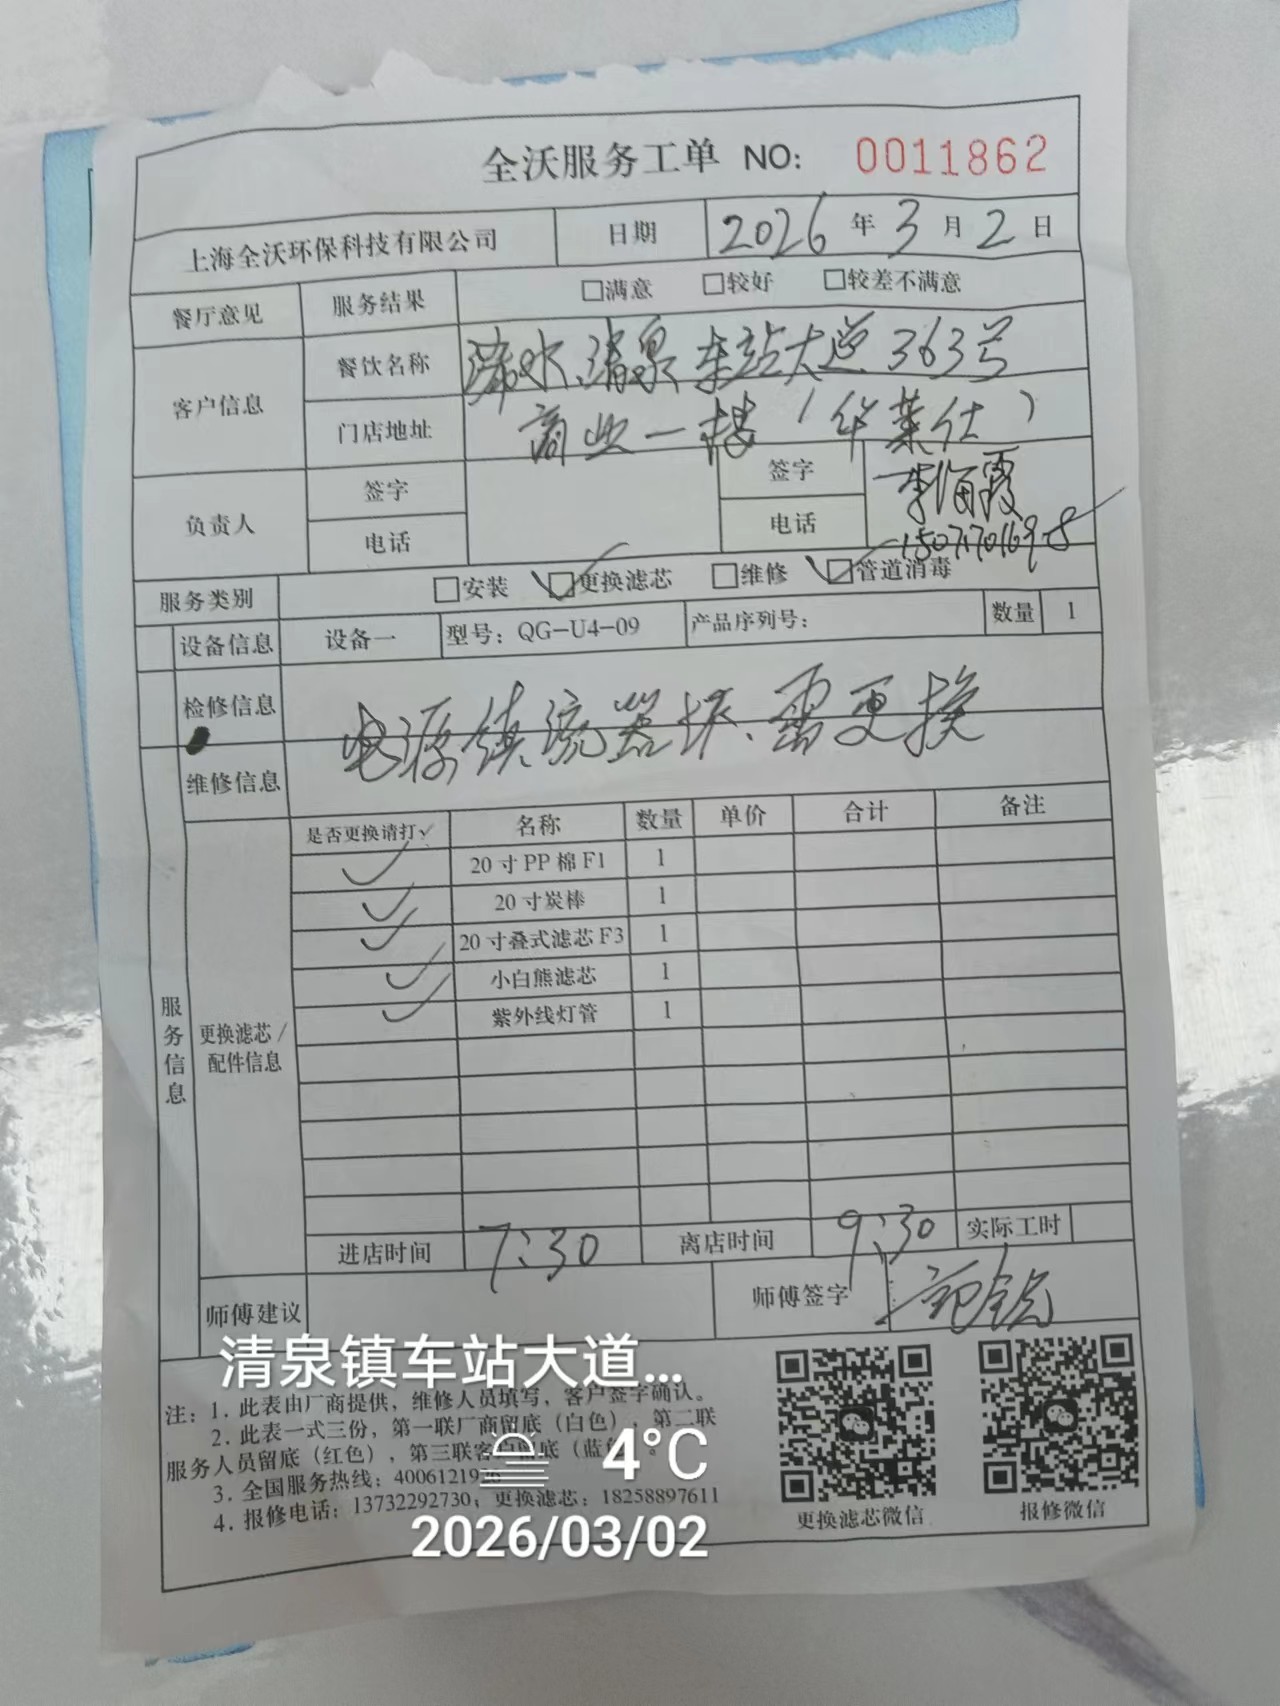 全沃服务工单 NO: 0011862
上海全沃环保科技有限公司 日期 2026年3月2日
餐厅意见 服务结果 □满意 □较好 □较差不满意
客户信息 餐饮名称 浠水、清泉车站大道363号
门店地址 商业一楼(华莱仕)
负责人 签字 签字 李海霞
电话 电话
服务类别 □安装 ☑更换滤芯 □维修 ☑管道消毒
设备信息 设备一 型号:QG-U4-09 产品序列号: 数量 1
检修信息 电源镇流器坏、需更换
维修信息
服务信息
更换滤芯/配件信息
是否更换请打✓ 名称 数量 单价 合计 备注
✓ 20寸PP棉F1 1
✓ 20寸炭棒 1
✓ 20寸叠式滤芯F3 1
✓ 小白熊滤芯 1
✓ 紫外线灯管 1
进店时间 7:30 离店时间 9:30 实际工时
师傅建议 师傅签字
清泉镇车站大道...
注:1.此表由厂商提供,维修人员填写,客户签字确认。
2.此表一式三份,第一联厂商留底(白色),第二联
服务人员留底(红色),第三联客户留底(蓝
3.全国服务热线:40061219
4.报修电话:13732292730;更换滤芯:18258897611
更换滤芯微信 报修微信
4°C
2026/03/02